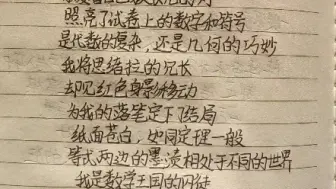 照亮了试卷上的数字和符号
是代数的复杂，还是几何的巧妙
我将思绪拉的冗长
却见红色身影移动
为我的落笔定下结局
纸面苍白，如同定理一般
等式两边的墨渍相处于不同的世界
我是数学王国的囚徒